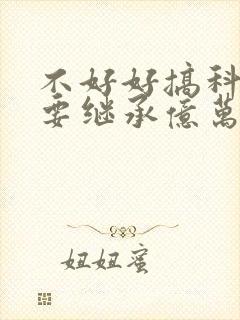 不好好搞科
要继承億萬
妞妞蜜